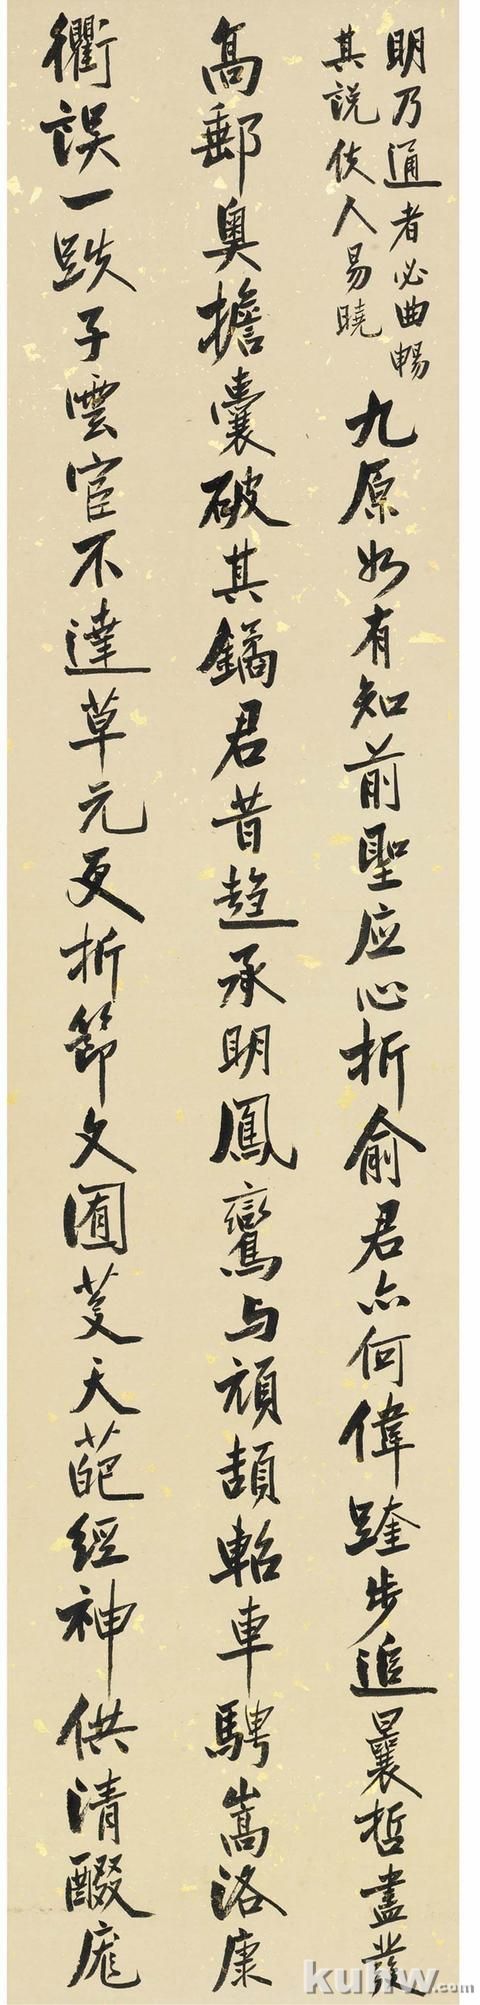 明乃通者必曲暢
其說使人易曉
九原如有知前聖應心折俞君亦何偉跬步追曩哲盡發
高郵奧擔囊破其鐍君昔趨承明鳳鸞與頑頡軺車騁嵩洛康
衢誤一跌子雲宦不達草元更折節文囿芟天葩經神供清醊庬
kuhw.com